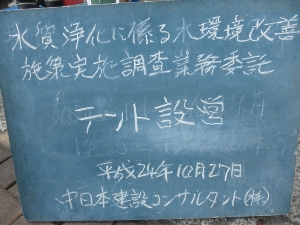 水質浄化に係る水環境改善
施策実施調査業務委託
テント設営
平成24年10月27日
中日本建設コンサルタント(株)